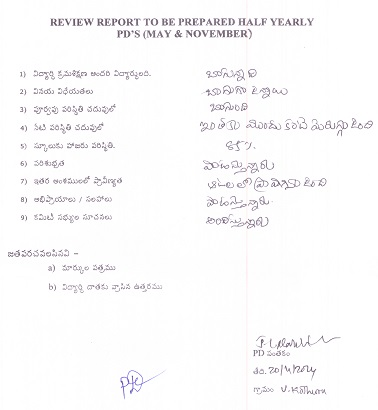 REVIEW REPORT TO BE PREPARED HALF YEARLY
PD'S (MAY & NOVEMBER)
1) విద్యార్థి క్రమశిక్షణ అందరి విద్యార్థులది. బాగున్నది
2) వినయ విధేయతలు బాగుగా ఉన్నాయి
3) పూర్వపు పరిస్థితి చదువులో బాగుంది
4) నేటి పరిస్థితి చదువులో ఇంతకు ముందు కంటే మెరుగ్గా ఉంది
5) స్కూలుకు హాజరు పరిస్థితి.
6) పరిశుభ్రత పాటిస్తున్నారు
7) ఇతర అంశములలో ప్రావీణ్యత ఆటలలో ఉంది
8) అభిప్రాయాలు / సలహాలు పాటిస్తున్నారు.
9) కమిటీ సభ్యుల సూచనలు
జతపరచవలసినవి -
a) మార్కుల పత్రము
b) విద్యార్థి దాతకు వ్రాసిన ఉత్తరము
PD సంతకం
తేది. 20/4/2024
గ్రామం V. Kothuru